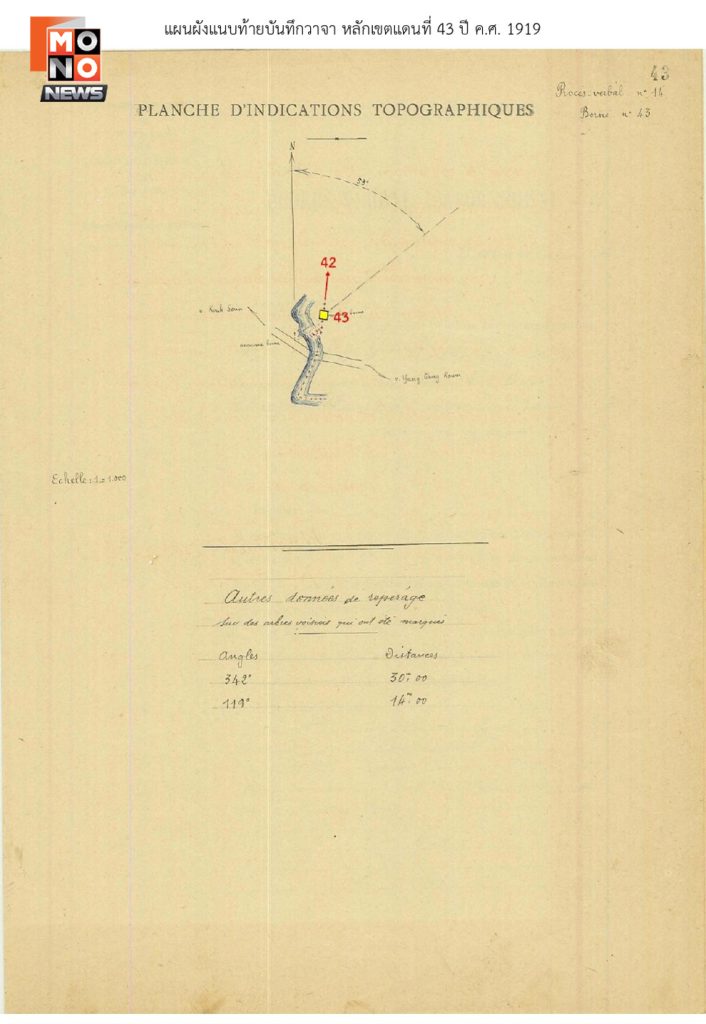 แผนผังแนบท้ายบันทึกวาจา หลักเขตแดนที่ 43 ปี ค.ศ. 1919
MONO
NEWS
43
Procès-verbal n° 14
Borne n° 43
PLANCHE D'INDICATIONS TOPOGRAPHIQUES
N
42
43
Echelle: 1 = 1.000
Autres données de repérage
Sur des arbres voisins qui ont été marqués
Angles Distances
342° 30m 00
119° 14m 00